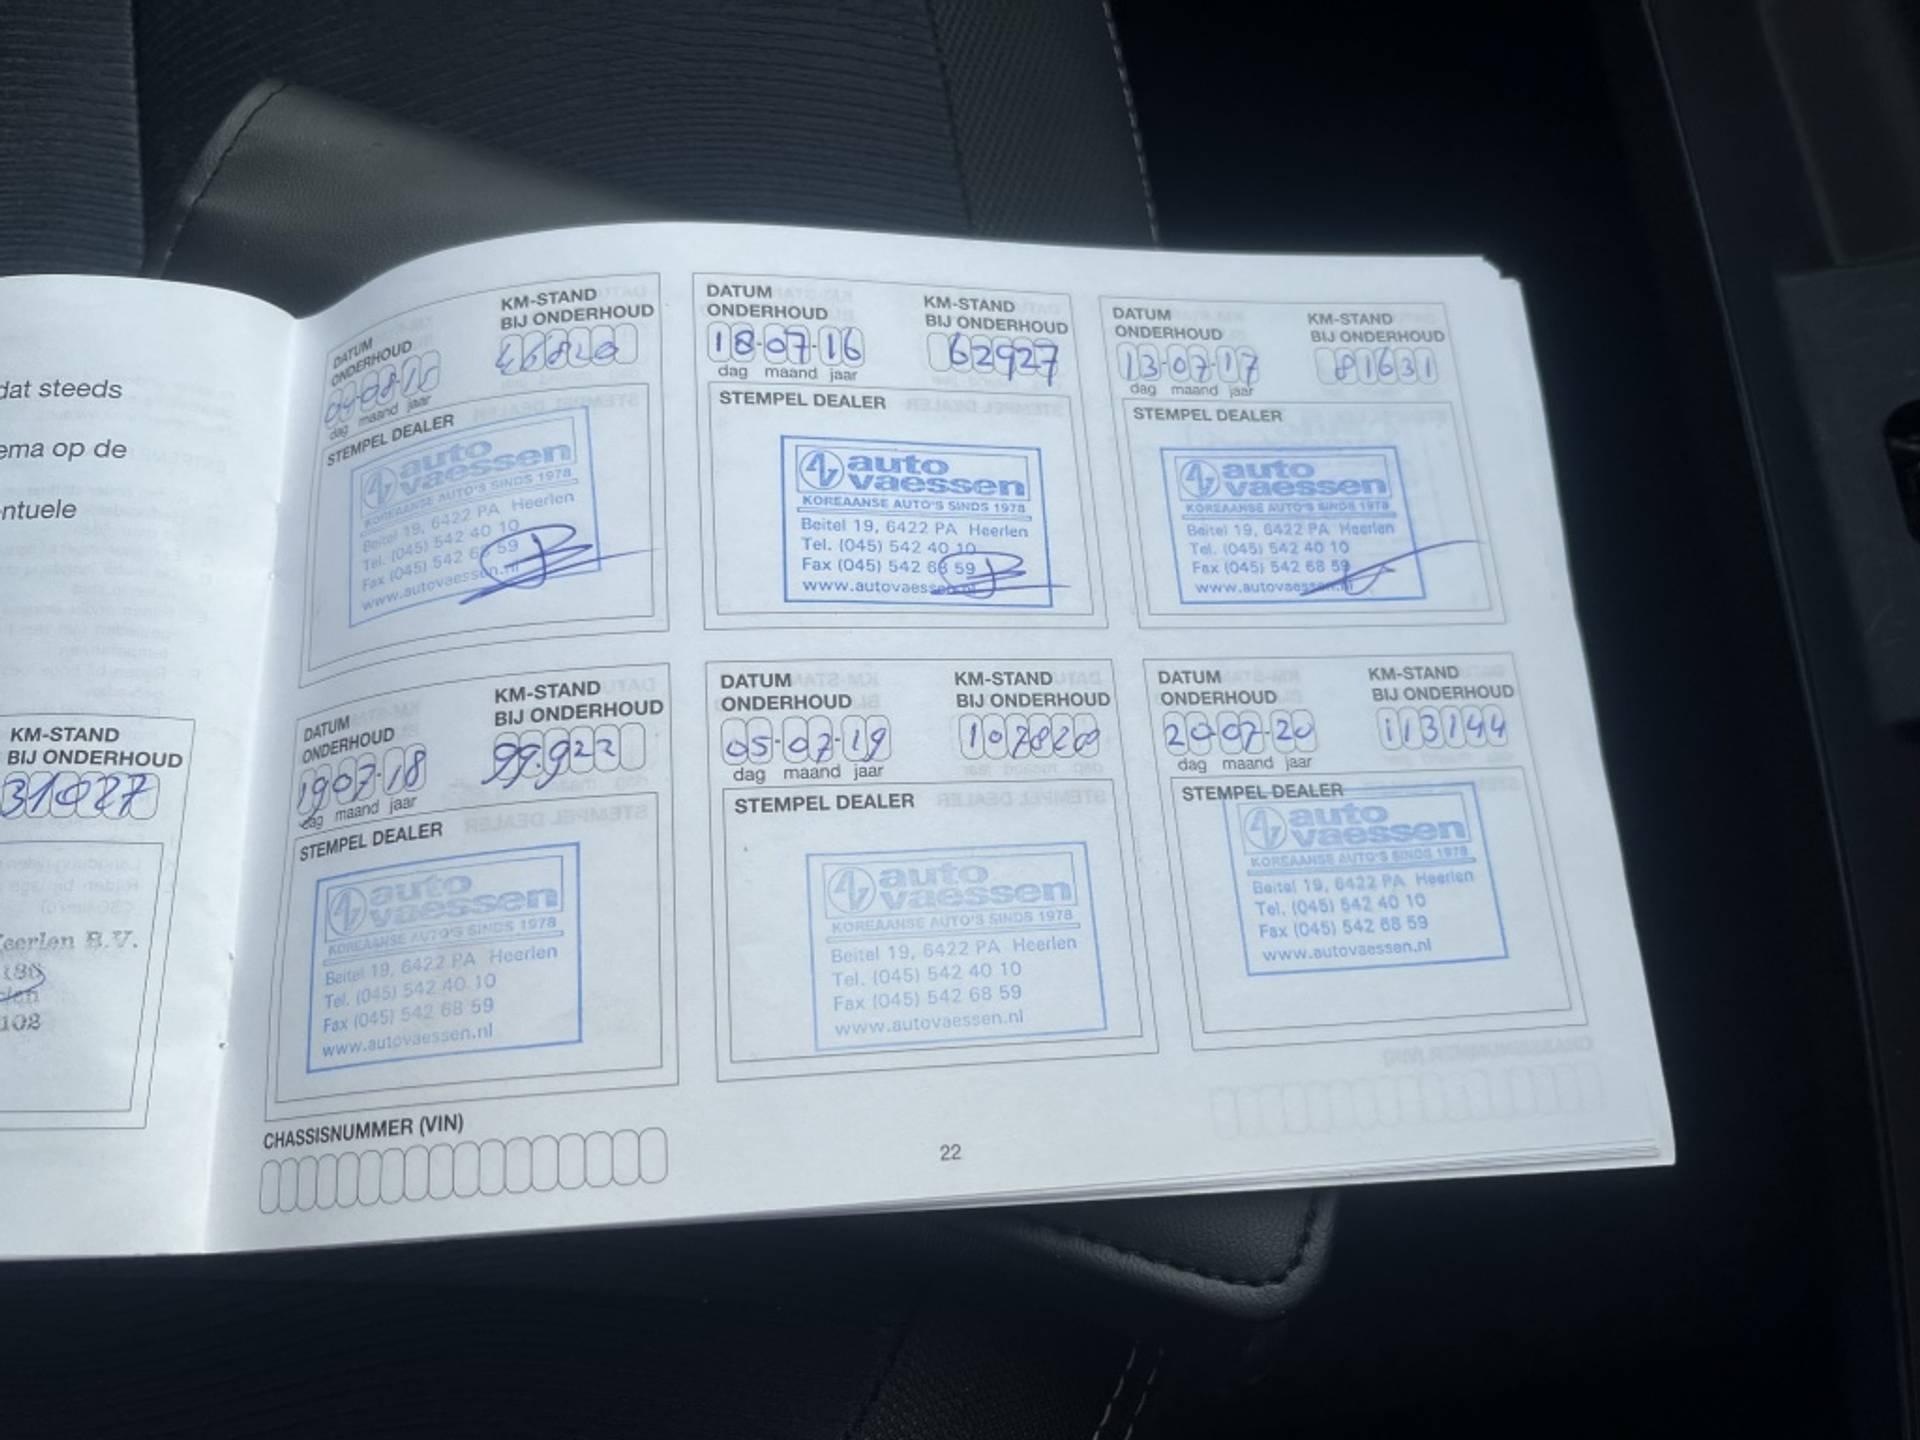 dat steeds
ema op de
ntuele
KM-STAND
BIJ ONDERHOUD
31027
Heerlen B.V.
102
DATUM
ONDERHOUD
KM-STAND
BIJ ONDERHOUD
04-08-15
46820
dag maand jaar
STEMPEL DEALER
auto
vaessen
KOREAANSE AUTO'S SINDS 1978
Beitel 19, 6422 PA Heerlen
Tel. (045) 542 40 10
Fax (045) 542 68 59
www.autovaessen.nl
DATUM
ONDERHOUD
KM-STAND
BIJ ONDERHOUD
18-07-16
62927
dag maand jaar
STEMPEL DEALER
auto
vaessen
KOREAANSE AUTO'S SINDS 1978
Beitel 19, 6422 PA Heerlen
Tel. (045) 542 40 10
Fax (045) 542 68 59
www.autovaessen.nl
DATUM
ONDERHOUD
KM-STAND
BIJ ONDERHOUD
13-07-17
81631
dag maand jaar
STEMPEL DEALER
auto
vaessen
KOREAANSE AUTO'S SINDS 1978
Beitel 19, 6422 PA Heerlen
Tel. (045) 542 40 10
Fax (045) 542 68 59
www.autovaessen.nl
DATUM
ONDERHOUD
KM-STAND
BIJ ONDERHOUD
19-07-18
99.922
dag maand jaar
STEMPEL DEALER
auto
vaessen
KOREAANSE AUTO'S SINDS 1978
Beitel 19, 6422 PA Heerlen
Tel. (045) 542 40 10
Fax (045) 542 68 59
www.autovaessen.nl
DATUM
ONDERHOUD
KM-STAND
BIJ ONDERHOUD
05-07-19
107820
dag maand jaar
STEMPEL DEALER
auto
vaessen
KOREAANSE AUTO'S SINDS 1978
Beitel 19, 6422 PA Heerlen
Tel. (045) 542 40 10
Fax (045) 542 68 59
www.autovaessen.nl
DATUM
ONDERHOUD
KM-STAND
BIJ ONDERHOUD
20-07-20
113144
dag maand jaar
STEMPEL DEALER
auto
vaessen
KOREAANSE AUTO'S SINDS 1978
Beitel 19, 6422 PA Heerlen
Tel. (045) 542 40 10
Fax (045) 542 68 59
www.autovaessen.nl
CHASSISNUMMER (VIN)
22